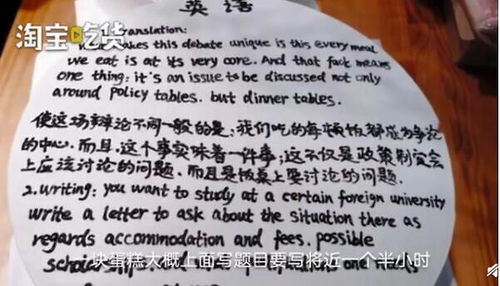 英语
淘宝吃货
translation:
makes this debate unique is this every meal
we eat is at its very core. And that fact means
one thing: it's an issue to be discussed not only
around policy tables. but dinner tables.
使这场辩论不同一般的是：我们吃的每顿饭都成为争论
的中心。而且，这个事实意味着一件事：这不仅是政策制定会
上应该讨论的问题，而且是饭桌上要讨论的问题。
2. writing: you want to study at a certain foreign university
write a letter to ask about the situation there as
regards accommodation and fees. possible
块蛋糕大概上面写题目要写将近一个半小时